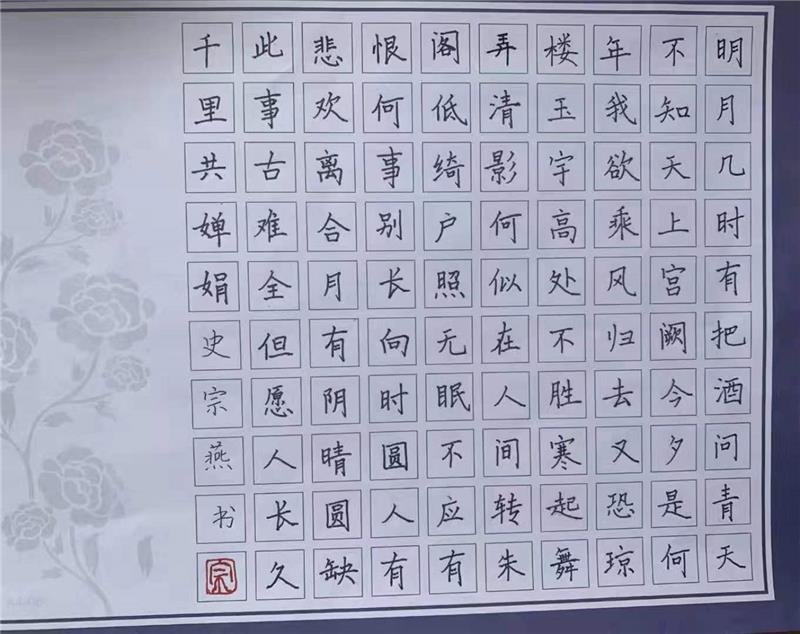 明月几时有把酒问青天
不知天上宫阙今夕是何
年我欲乘风归去又恐琼
楼玉宇高处不胜寒起舞
弄清影何似在人间转朱
阁低绮户照无眠不应有
恨何事别长向时圆人有
悲欢离合月有阴晴圆缺
此事古难全但愿人长久
千里共婵娟史宗燕书宗